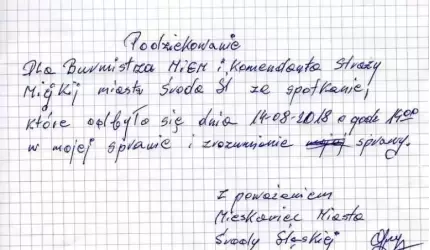 Podziękowanie
Dla Burmistrza MiGM i Komendanta Straży
Miejkij miasta Środa Śl za spotkanie,
które odbyło się dnia 14-08-2018 o godz 14:00
w mojej sprawie i zrozumienie sprawy.
Z poważaniem
Mieszkaniec Miasta
Środy Śląskiej